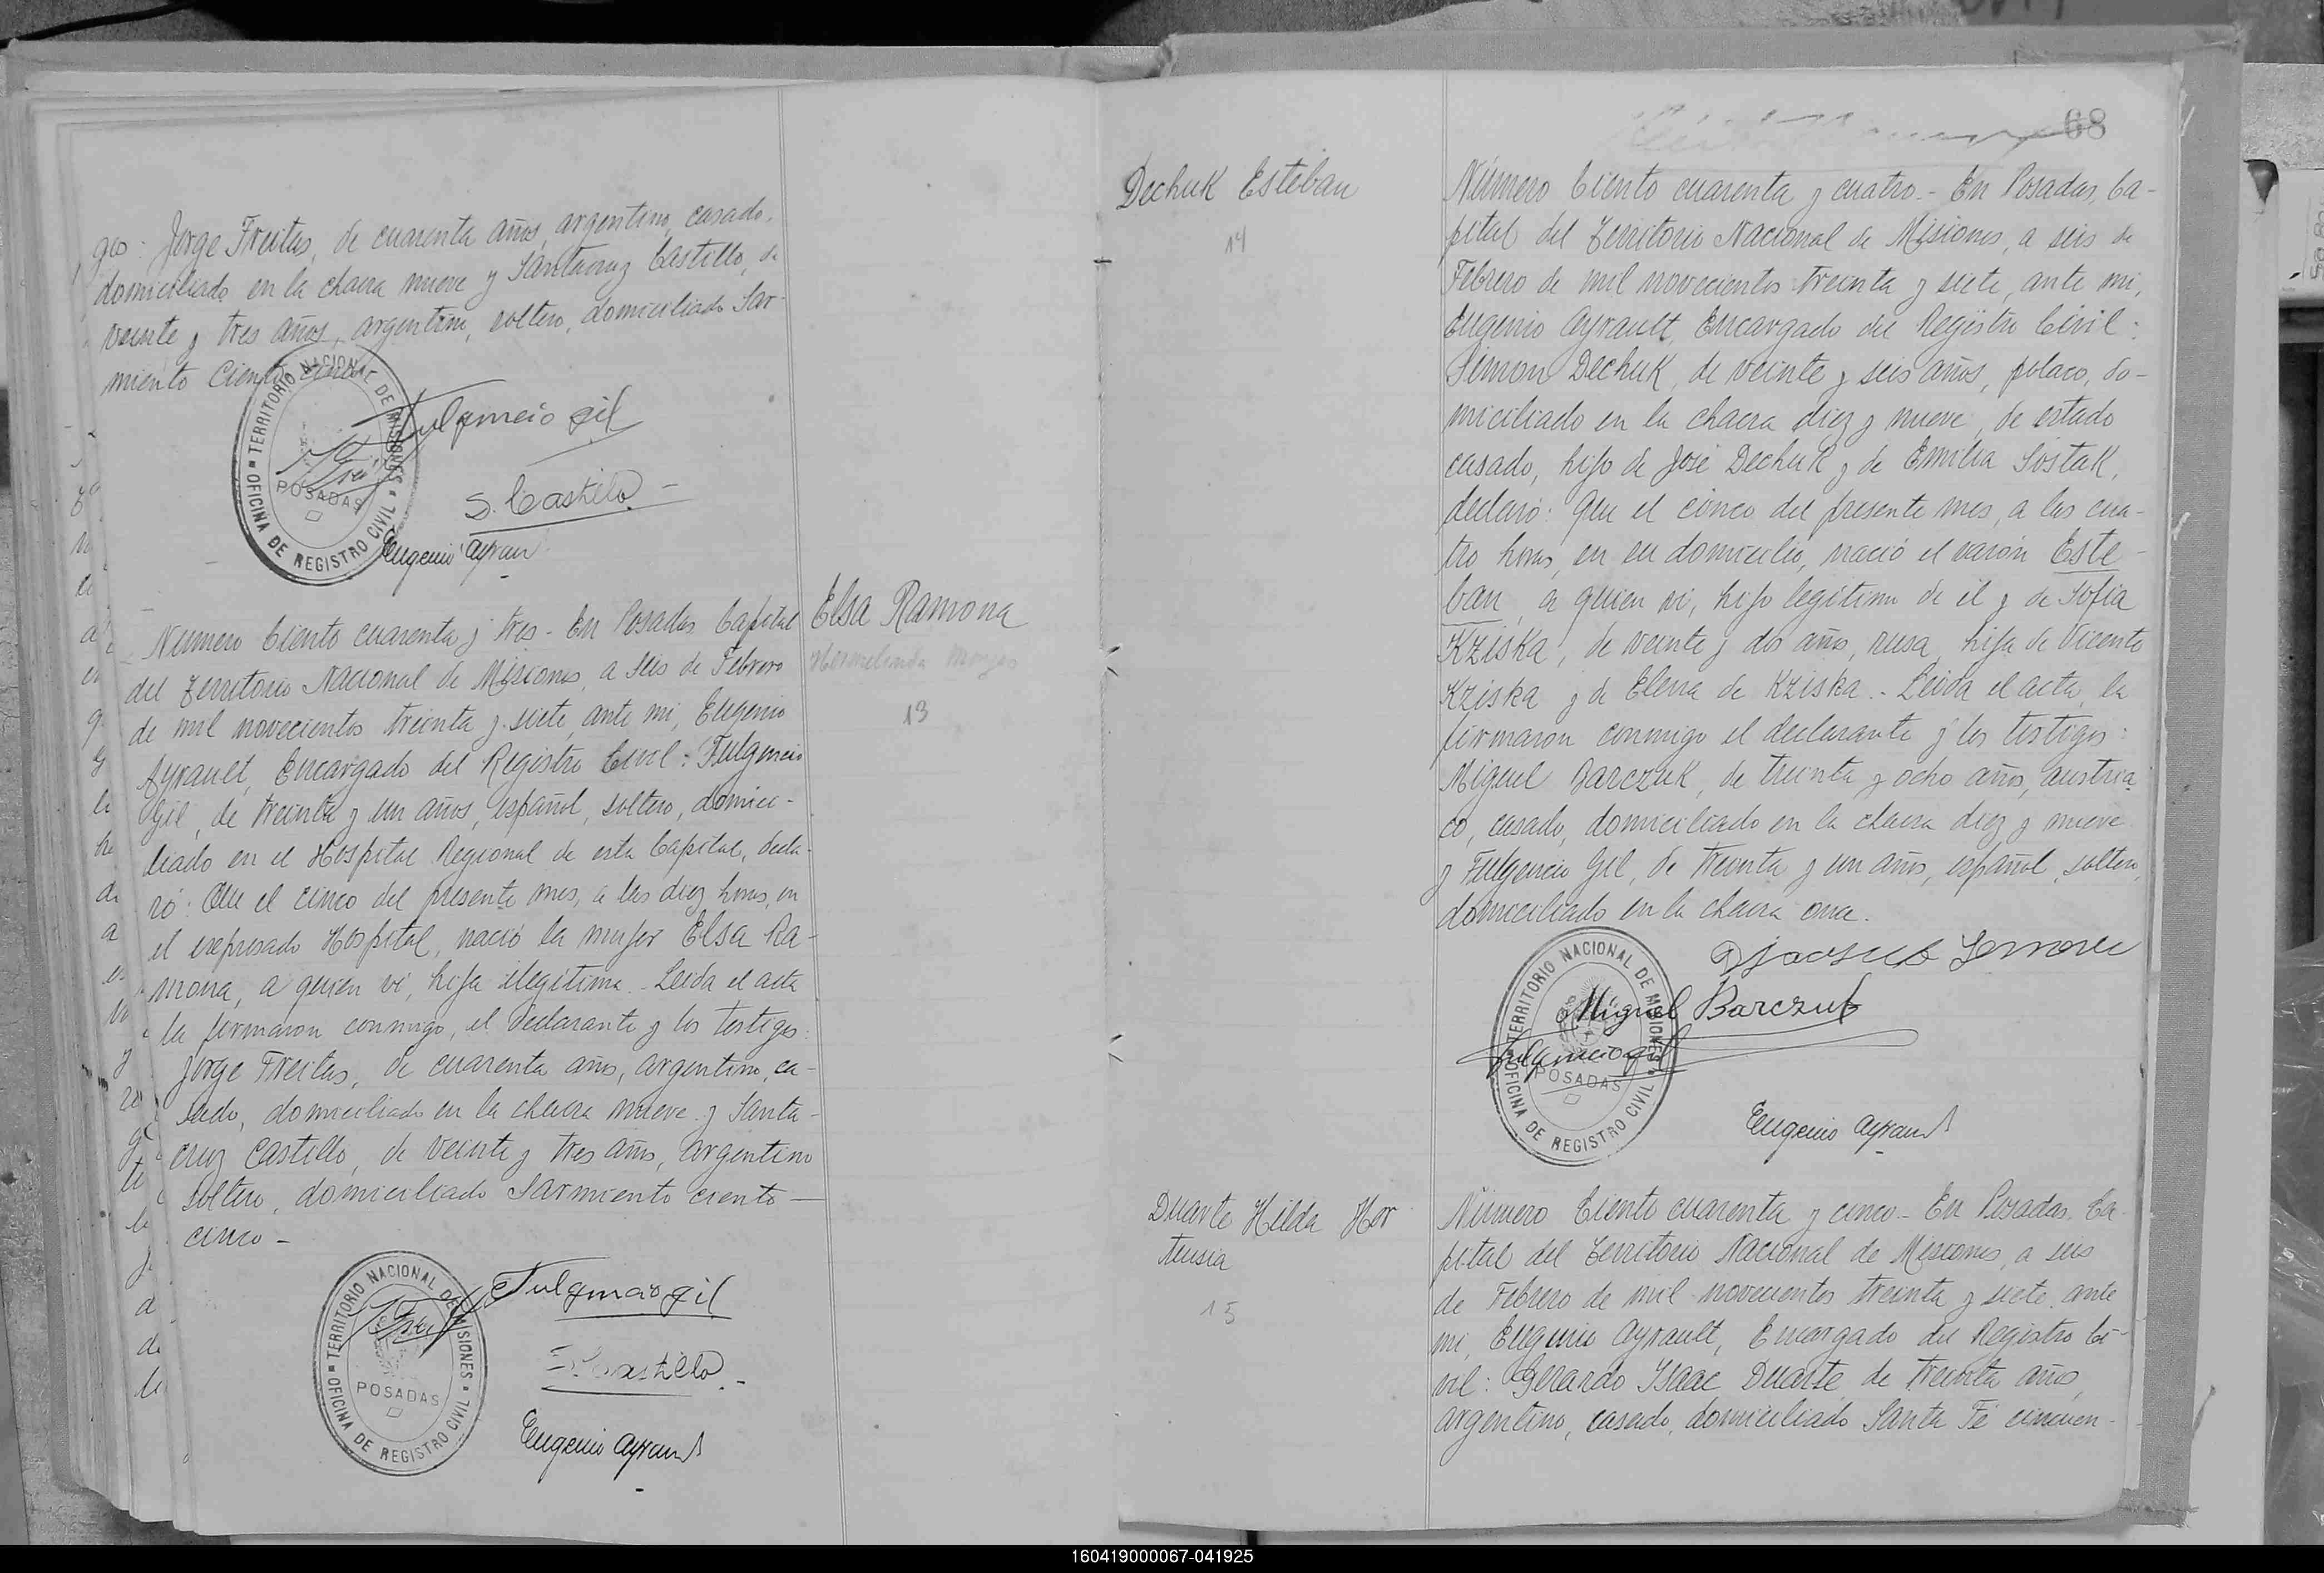 gos: Jorge Freitas, de cuarenta años, argentino, casado,
domiciliado en la chacra nueve y Santacruz Castillo, de
veinte y tres años, argentino, soltero, domiciliado Sar-
miento Ciento cinco
Fulgencio Gil
S. Castillo
Eugenio Ayrault
TERRITORIO NACIONAL DE MISIONES
POSADAS
OFICINA DE REGISTRO CIVIL
Elsa Ramona
Hermelinda
13
Número Ciento cuarenta y tres - En Posadas Capital
del Territorio Nacional de Misiones, a seis de Febrero
de mil novecientos treinta y siete, ante mi, Eugenio
Ayrault, Encargado del Registro Civil: Fulgencio
Gil, de treinta y un años, español, soltero, domici-
liado en el Hospital Regional de esta Capital, decla-
ró: Que el cinco del presente mes, a las diez horas, en
el expresado Hospital, nació la mujer Elsa Ra-
mona, a quien vi, hija ilegitima. - Leida el acta
la firmaron conmigo, el declarante y los testigos:
Jorge Freitas, de cuarenta años, argentino, ca-
sado, domiciliado en la chacra nueve y Santa-
cruz Castillo, de veinte y tres años, argentino
soltero, domiciliado Sarmiento ciento
cinco -
Fulgencio Gil
S. Castillo
Eugenio Ayrault
TERRITORIO NACIONAL DE MISIONES
POSADAS
OFICINA DE REGISTRO CIVIL
68
Dechuk Esteban
14
Número Ciento cuarenta y cuatro - En Posadas, Ca-
pital del Territorio Nacional de Misiones, a seis de
Febrero de mil novecientos treinta y siete, ante mi,
Eugenio Ayrault, Encargado del Registro Civil:
Simon Dechuk, de veinte y seis años, polaco, do-
miciliado en la chacra diez y nueve, de estado
casado, hijo de José Dechuk y de Emilia Sostak,
declaró: Que el cinco del presente mes, a las cua-
tro horas, en su domicilio, nació el varón Este-
ban, a quien vi, hijo legítimo de él y de Sofia
Kziska, de veinte y dos años, rusa, hija de Vicente
Kziska y de Elena de Kziska. - Leida el acta, la
firmaron conmigo el declarante y los testigos:
Miguel Barczuk, de treinta y ocho años, austria-
co, casado, domiciliado en la chacra diez y nueve
y Fulgencio Gil, de treinta y un años, español, soltero,
domiciliado en la chacra once.
Miguel Barczuk
Fulgencio Gil
Eugenio Ayrault
TERRITORIO NACIONAL DE MISIONES
POSADAS
OFICINA DE REGISTRO CIVIL
Duarte Hilda Hor
tensia
15
Número Ciento cuarenta y cinco - En Posadas, Ca
pital del Territorio Nacional de Misiones, a seis
de Febrero de mil novecientos treinta y siete, ante
mi, Eugenio Ayrault, Encargado del Registro Ci-
vil: Gerardo Isaac Duarte, de treinta años,
argentino, casado, domiciliado Santa Fé cincuen-
160419000067-041925